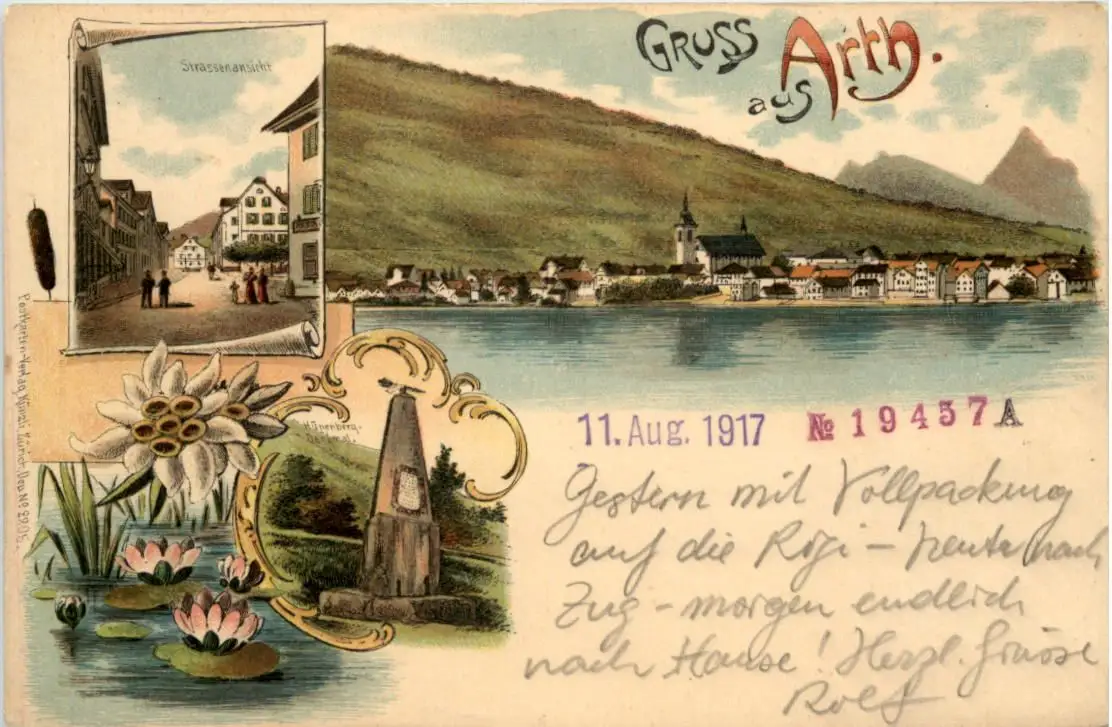 GRUSS
aus Arth.
Strassenansicht
Hünenberg-
Denkmal.
Postkarten-Verlag Künzli, Zürich, Dep. No 2905
11. Aug. 1917 No 19457 A
Gestern mit Vollpackung
auf die Rigi – heute nach
Zug – morgen endlich
nach Hause! Herzl. Grüsse
Rolf